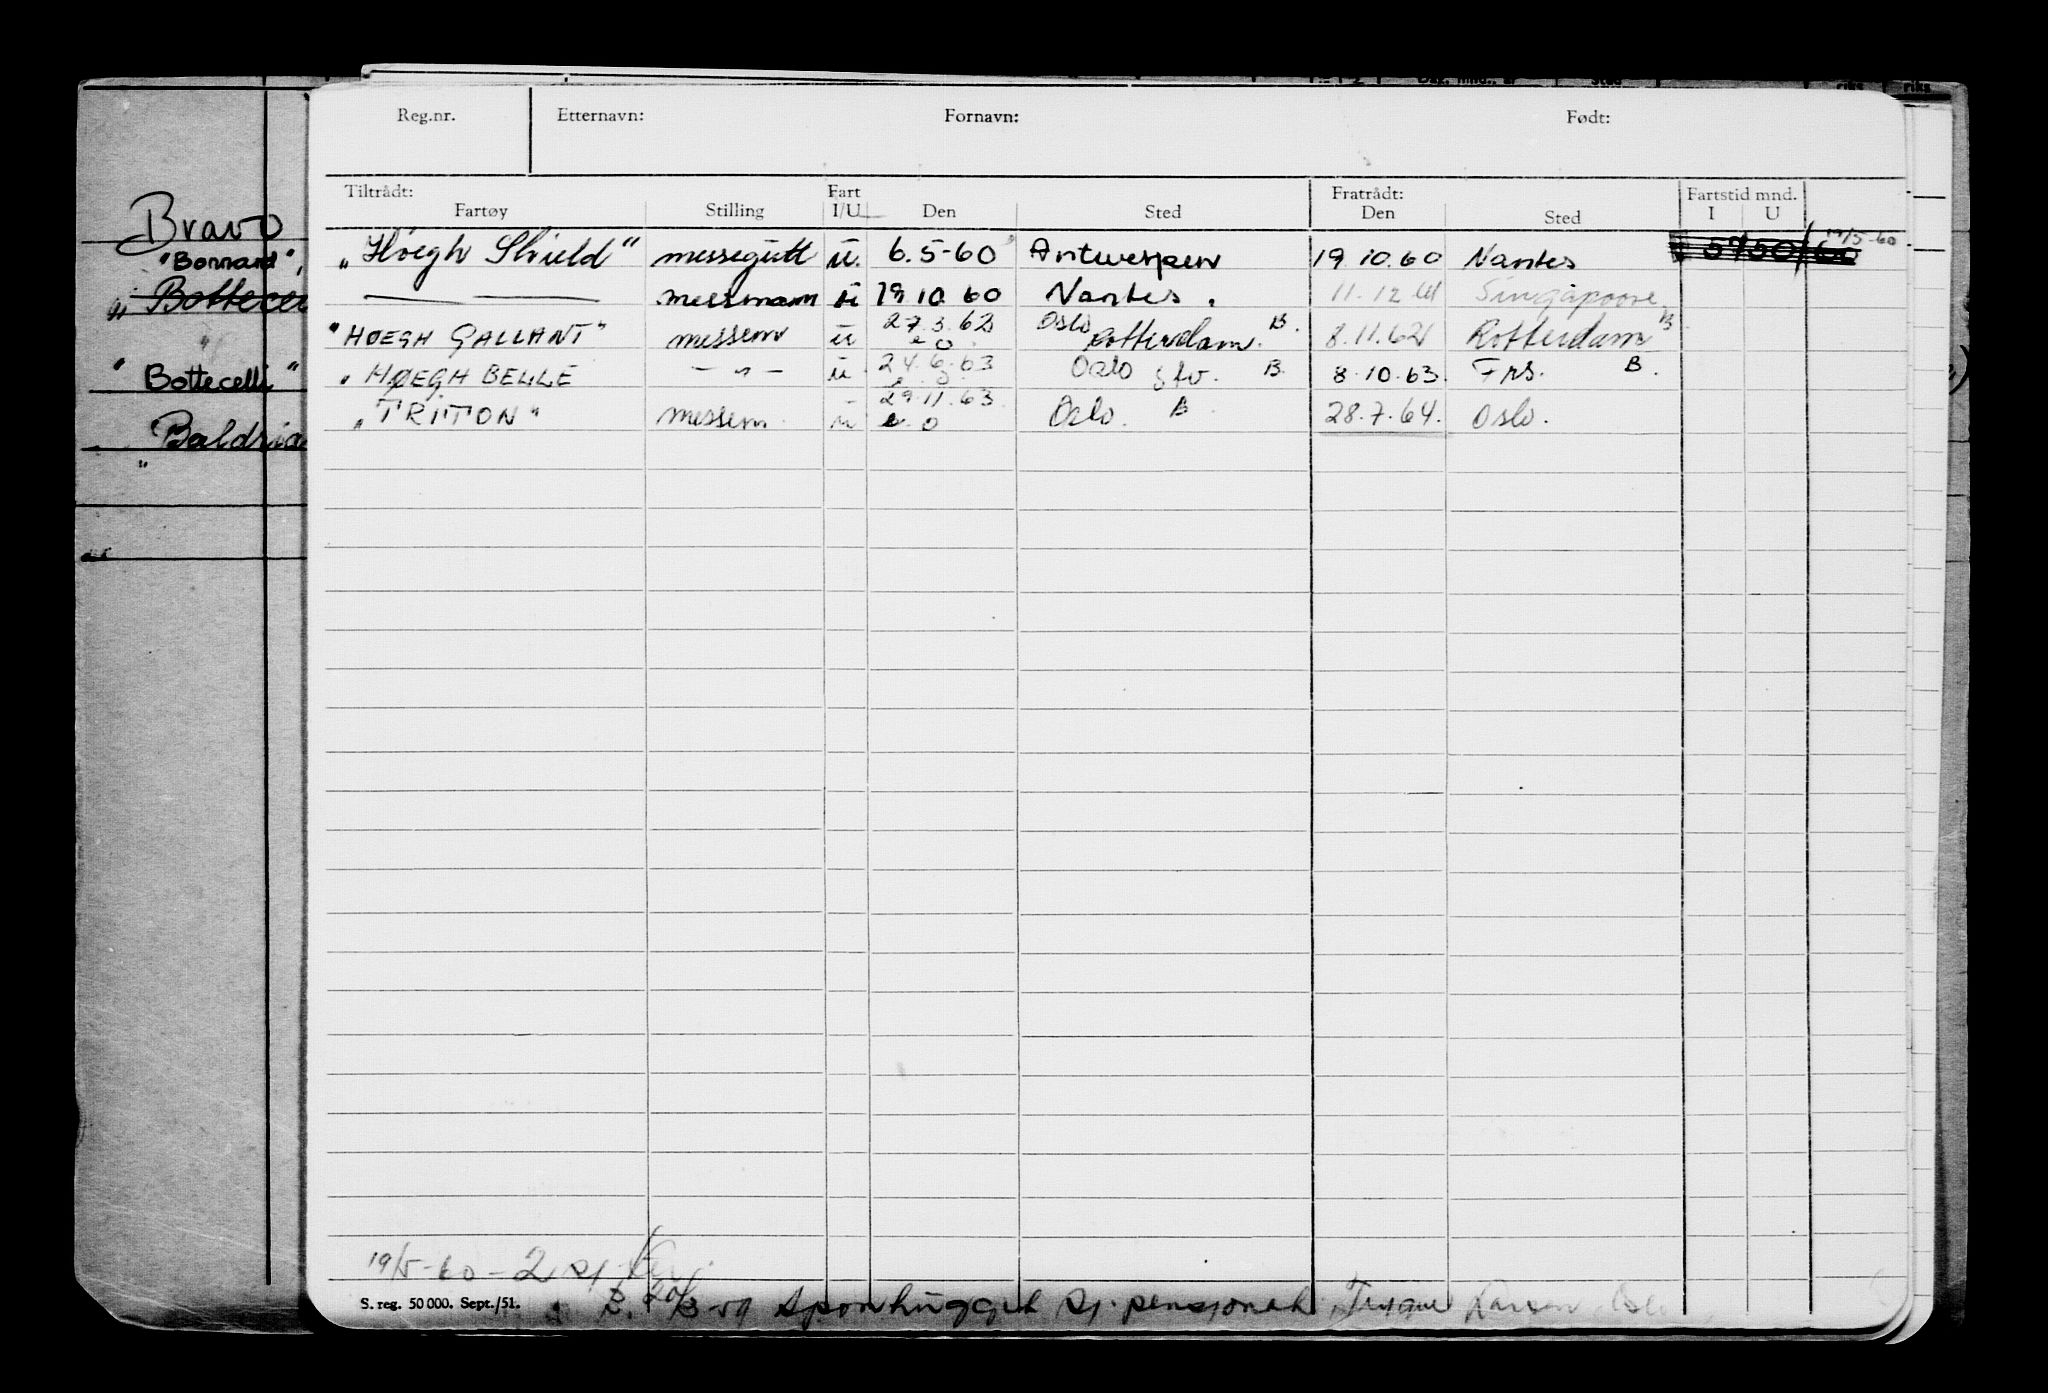 Reg.nr. Etternavn: Fornavn: Født:
Tiltrådt: Fart Fratrådt: Fartstid mnd.
Fartøy Stilling I/U Den Sted Den Sted I U
Bravo
"Bonnard",
"Bottecel
"Bottecelli"
"
„Høegh Shield" messegutt u. 6.5-60 Antwerpen 19.10.60 Nantes 19/5-60
— — messmann u 19.10.60 Nantes. 11.12.61 Singapoore.
"HØEGH GALLANT" messem u 27.3.62 Oslo Rotterdam. B. 8.11.62 Rotterdam B
„HØEGH BELLE — " — u 24.6.63 Oslo B. 8.10.63. Frs. B.
„TRITON" messem. u 29.11.63 Oslo. B 28.7.64. Oslo.
19/5-60 - 2 sj.
S. reg. 50 000. Sept./51.
B. 20/3-59 sj. pensjonat Larsen Oslo